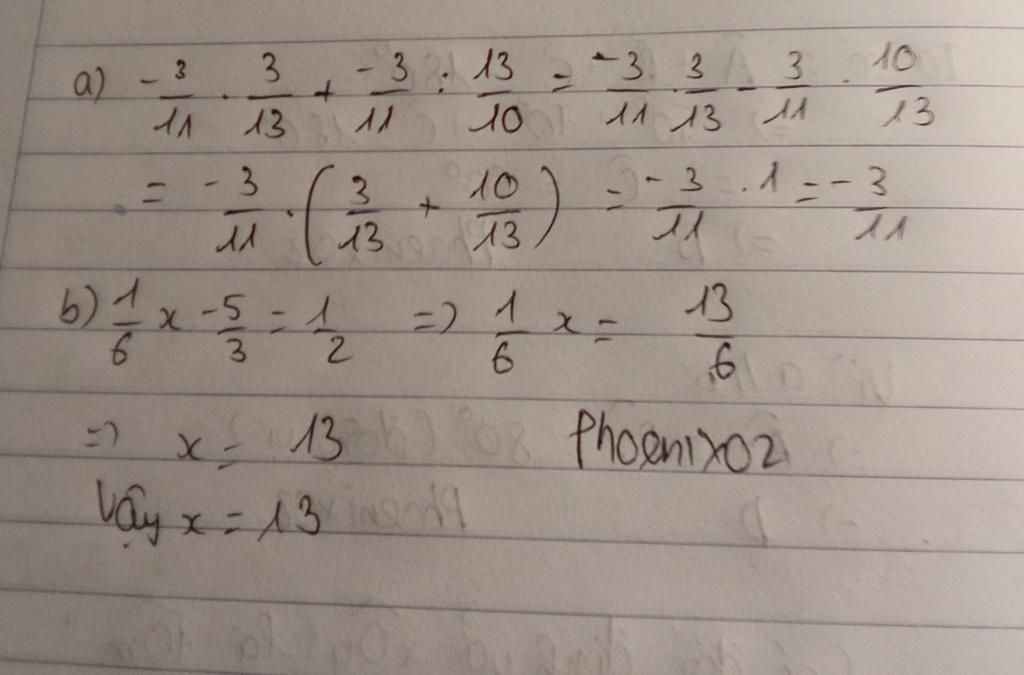 a) -3/11 . 3/13 + -3/11 : 13/10 = -3/11 . 3/13 - 3/11 . 10/13
= -3/11 . (3/13 + 10/13) = -3/11 . 1 = -3/11
b) 1/6 x - 5/3 = 1/2 => 1/6 x = 13/6
=> x = 13 Phoenix02
Vậy x = 13